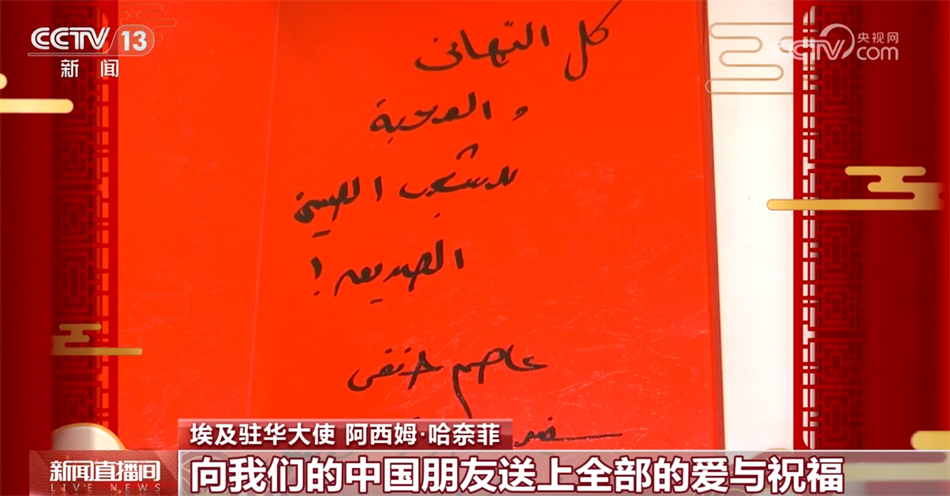 CCTV 13
新闻
央视网
CCTV.com
كل التهاني
و المحبة
للشعب الصيني
الصديق !
عاصم حنفي
埃及驻华大使 阿西姆·哈奈菲
新闻直播间
LIVE NEWS
向我们的中国朋友送上全部的爱与祝福